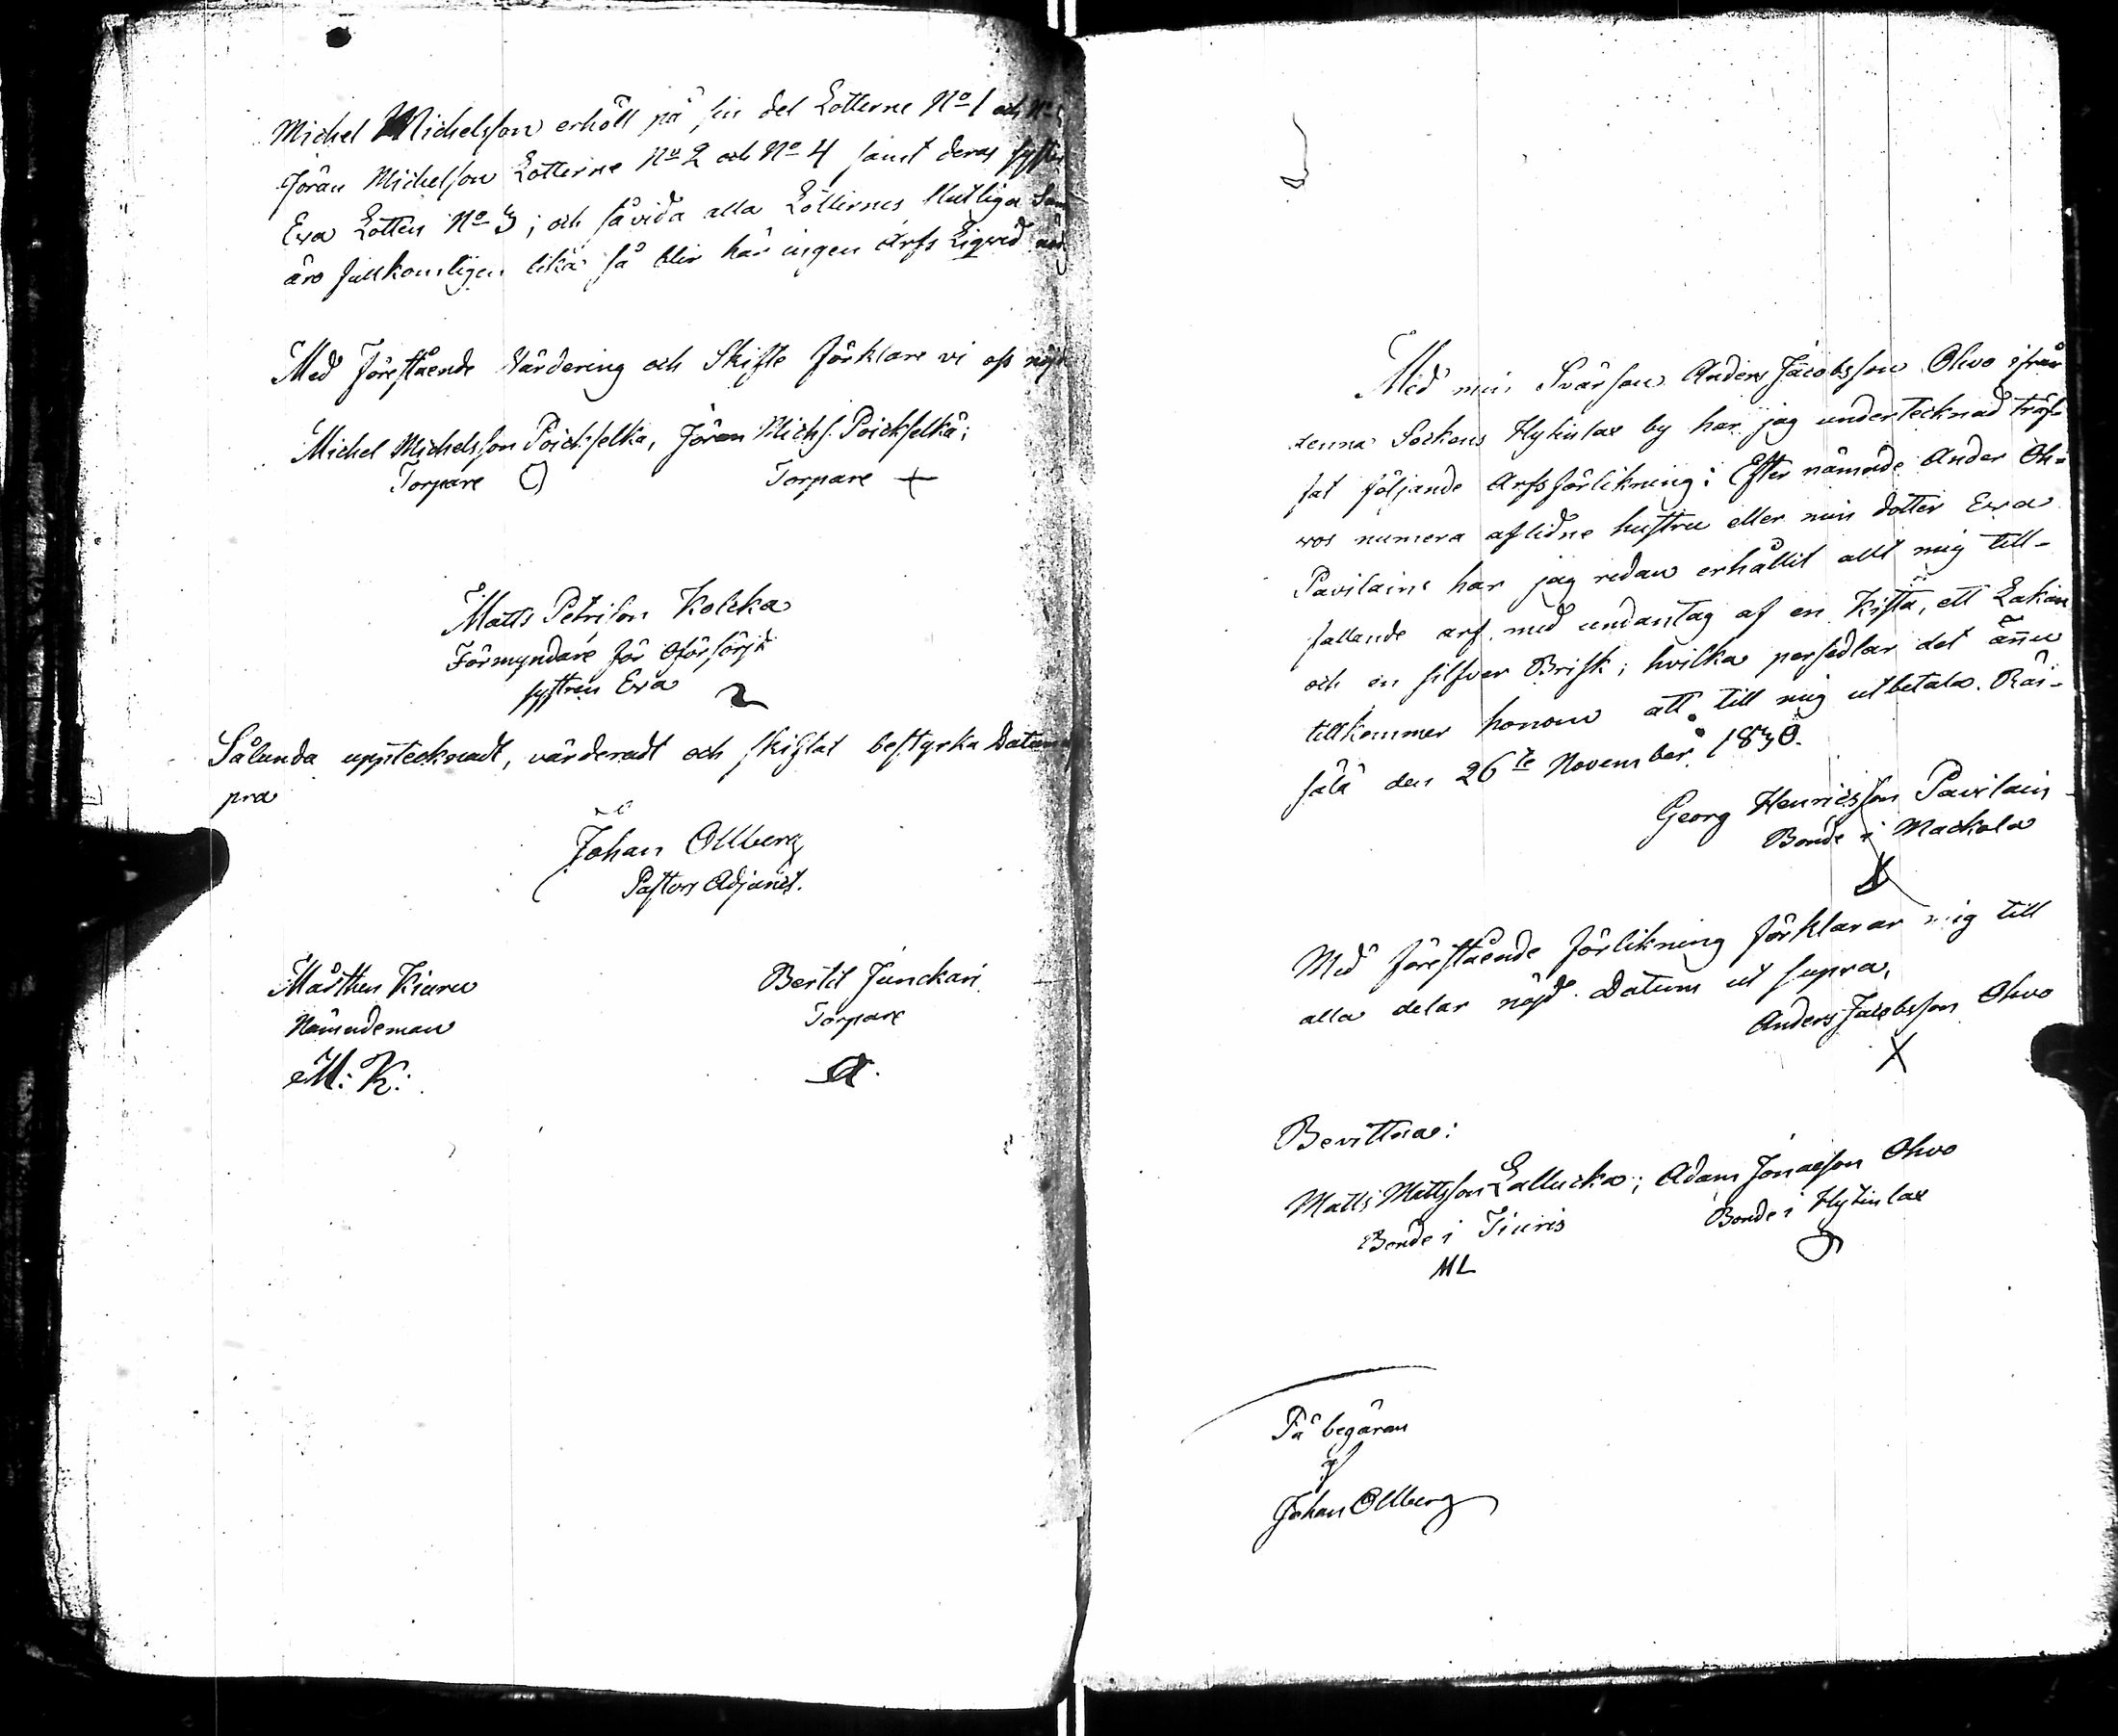 Michel Michelsson erhöll på sin del Lotterne No 1 och No
Jöran Michelsson Lotterne No 2 och No 4 samt deras syster
Eva Lotten No 3; och såvida alla Lotternes slutliga Sum
äro fullkomligen lika så blir här ingen Arfs Liqvid
Med Förestående Värdering och Skifte förklare vi oss nöjde
Michel Michelsson Poickselkä, Jöran Michs. Poickselkä;
Torpare Torpare +
Matts Petrison Kolcka
Förmyndare för Oförsörjd
systren Eva
Sålunda upptecknadt, värderadt och skiftat bestyrka Datum
pra
Johan Ollberg
Pastors Adjunct.
Mårthen Kiuru Bertil Junckari
Nämndeman Torpare
M: K:
Med min Svärson Anders Jacobsson Ohvo ifrån
denna Sockens Hytinlax by har jag undertecknad träf-
fat följande Arfsförlikning: Efter nämnde Anders Oh-
vos numera aflidne hustru eller min dotter Eva
Pavilaine har jag redan erhållit allt mig till-
fallande arf med undantag af en Kista, ett Lakan
och en silfver Brisk; hvilka persedlar det ännu
tillkommer honom att till mig utbetala. Räi-
sälä den 26te November 1830.
Georg Henricsson Pavilain
Bonde i Mackola
Med förestående förlikning förklarar mig till
alla delar nöjd. Datum ut supra.
Anders Jacobsson Ohvo
X
Bevittna:
Matts Mattsson Lallucka; Adam Jonasson Ohvo
Bonde i Tiuris Bonde i Hytinlax
ML
På begäran
Johan Ollberg